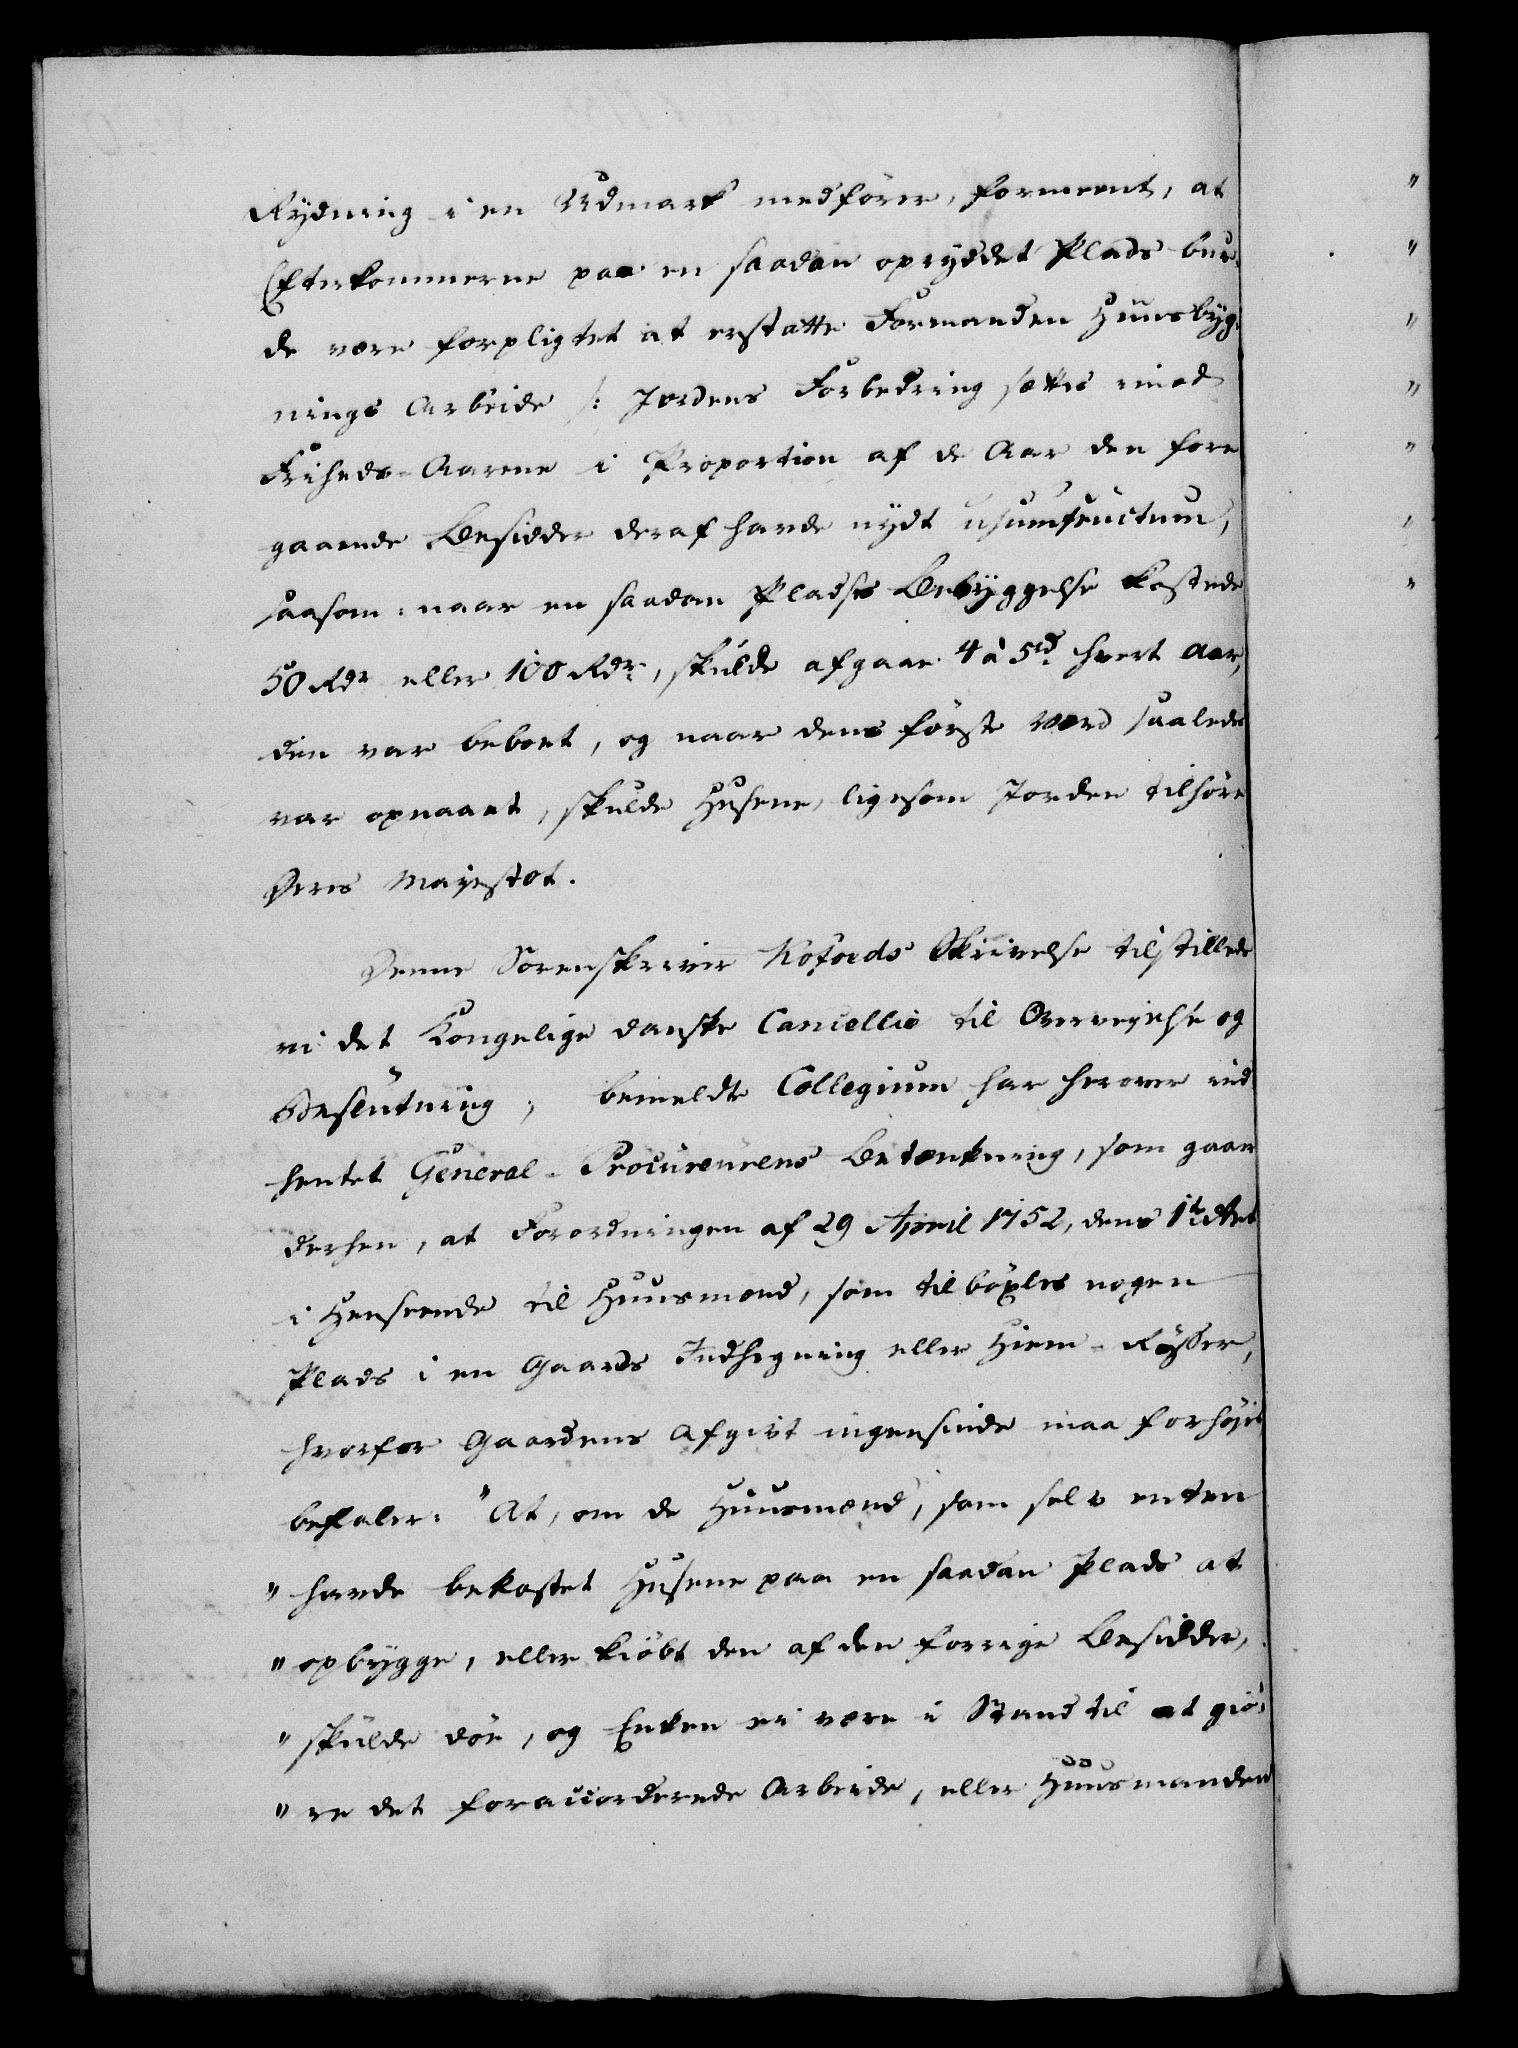 Rydning i en Udmark medfører, formeent, at
Efterkommerne paa en saadan opryddet Plads bur,,
de være forpligtet at erstatte Formanden Huusbyg,,
nings Arbeide /: Jordens Forbedring sættes imod
Friheds-Aarene i Proportion af de Aar den fore
gaaende Besidder deraf havde nydt usumfructum,
saasom: naar en saadan Pladses Bebyggelse kostede
50 Rdr eller 100 Rdr, skulde afgaae 4 à 5rd hvert Aar,
den var beboet, og naar dens første Værd saaledes
var opnaaet, skulde Husene, ligesom Jorden tilhøre
Deres Majestæt.
Denne Sorenskriver Kofoeds Skrivelse tilstillede
vi det Kongelige danske Cancellie til Overvejelse og
Beslutning; bemeldte Collegium har herover ind
hentet General-Procureurens Betænkning, som gaaer
derhen, at Forordningen af 29 April 1752, dens 1te Art
i Henseende til Huusmænd, som tilbøxles nogen
Plads i en Gaards Indhegning eller Hiem-Røsser,
hvorfor Gaardens Afgivt ingensinde maa forhøjes
befaler: "At, om de Huusmænd, som selv enten
" havde bekostet Husene paa en saadan Plads at
" opbygge, eller kiøbt den af den forrige Besidder,
" skulde døe, og Enken ei være i Stand til at giø,,
" re det foraccorderede Arbeide, eller Huusmanden